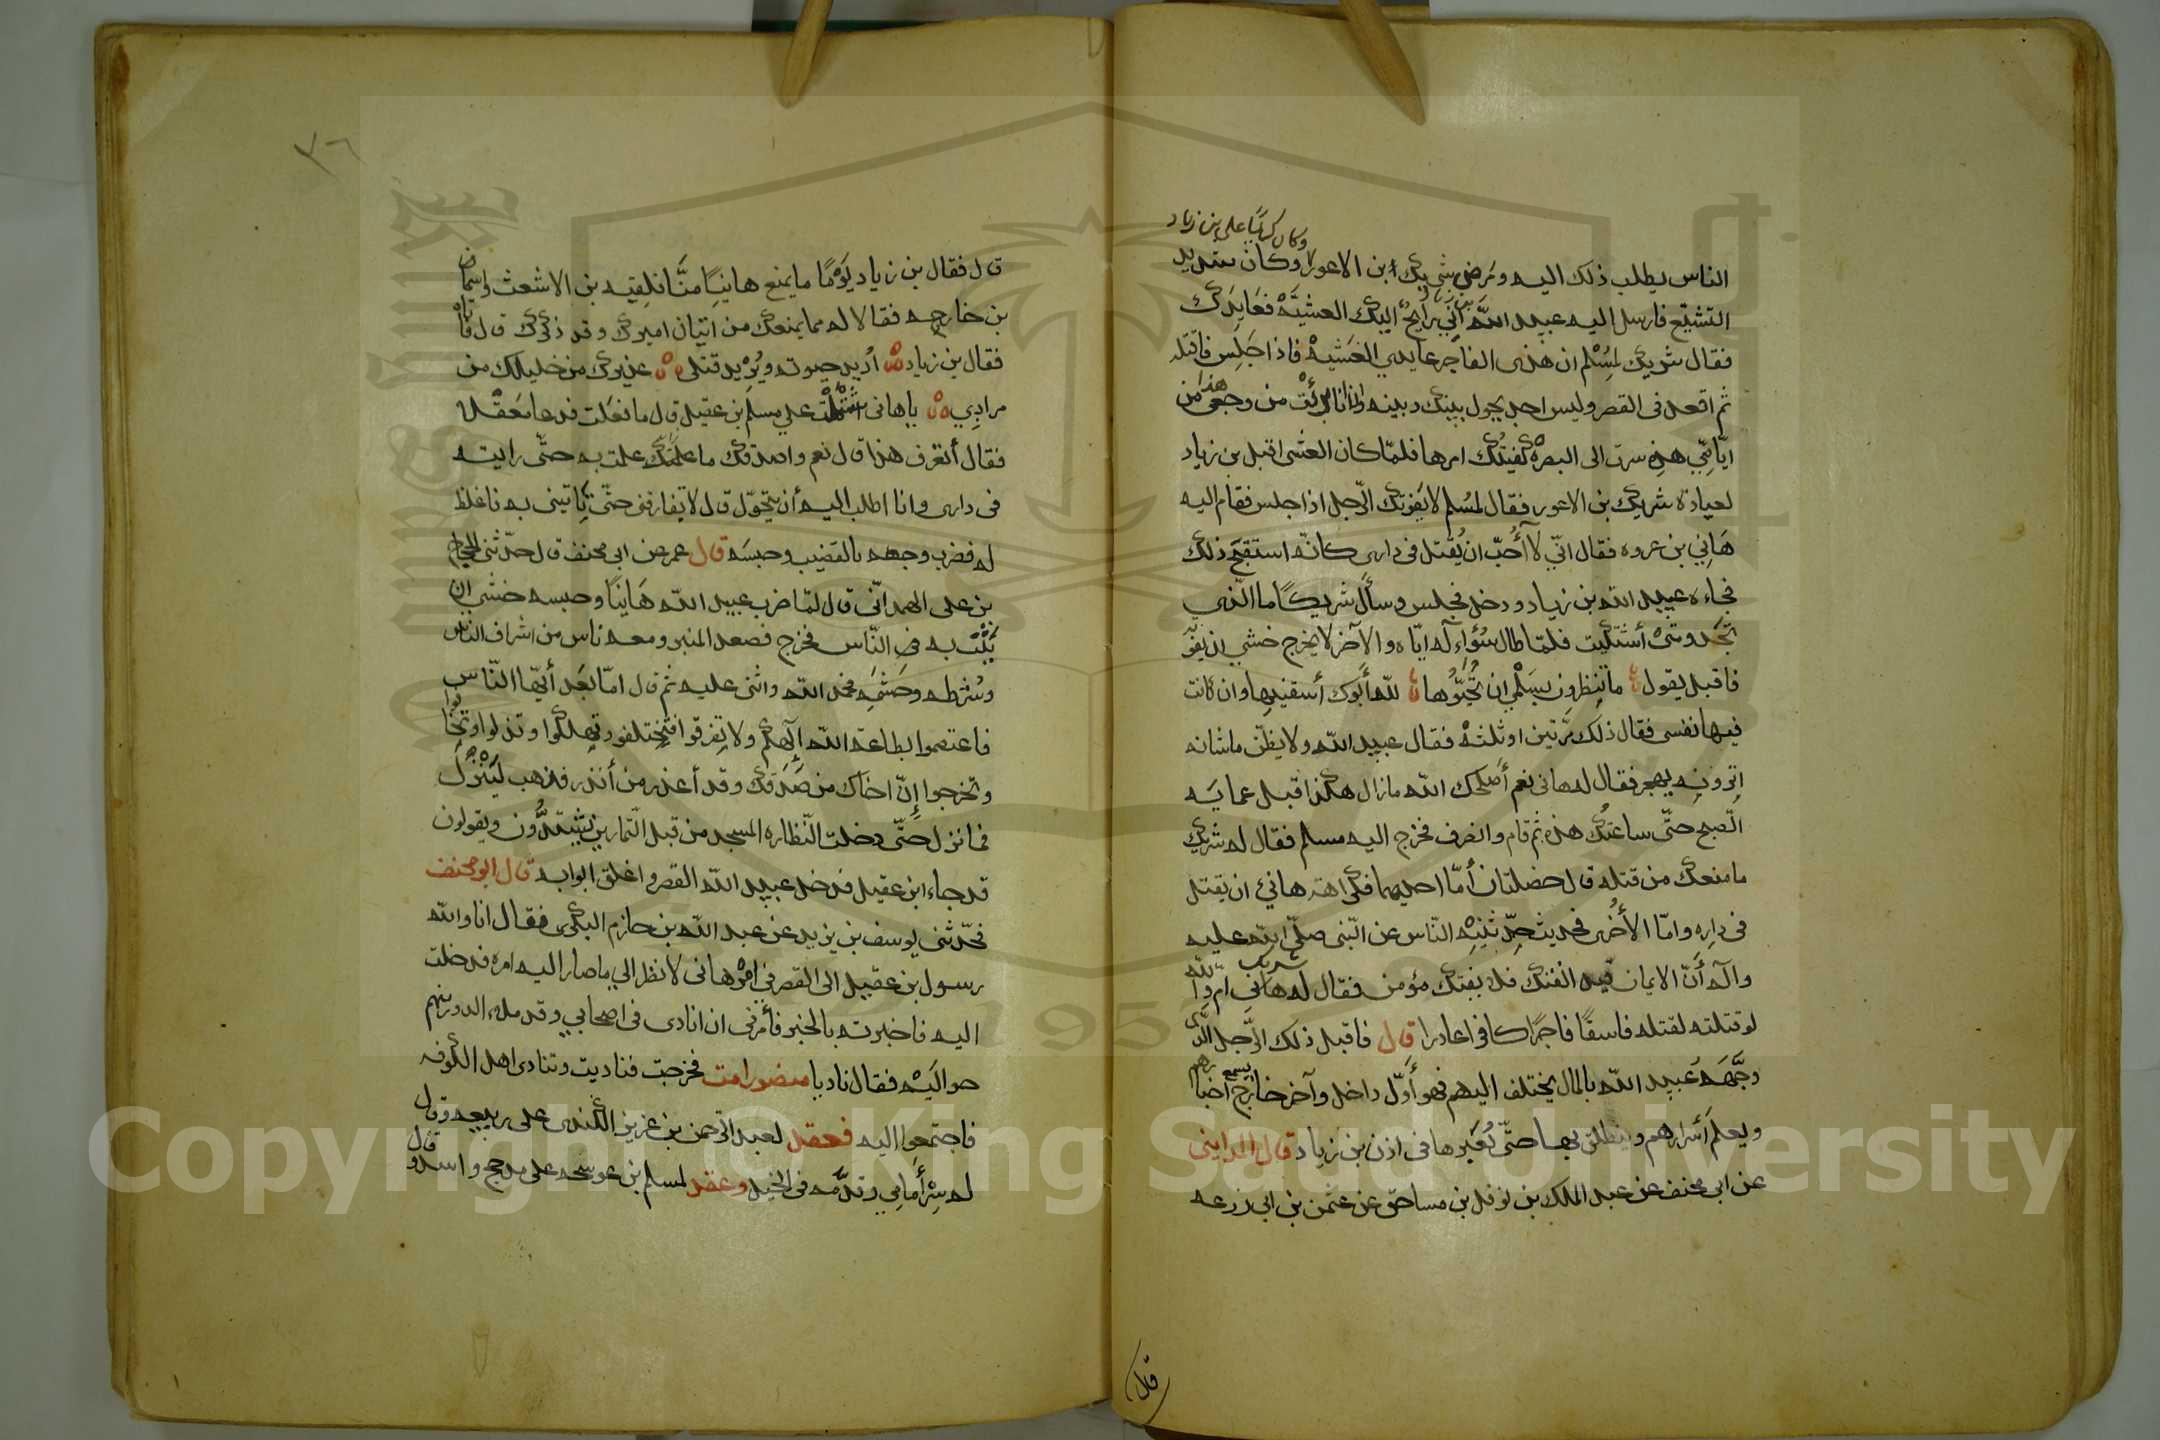 وكان كريما على بن زياد
الناس يطلب ذلك اليه ومرض شريك ابن الاعور وكان شديد
التشيّع فارسل اليه عبيد الله انى رايح اليك العشيّة فعايدك
فقال شريك لمسلم ان هذى الفاجر عايدي العشيه فاذا جلس فاقتله
ثم اقعد فى القصر وليس احد يحول بينك وبينه وان انا برئت من وجعى هذا من
ايّامي هذه سرت الى البصرة كفيتك امرها فلمّا كان العشى اقبل بن زياد
لعيادة شريك بن الاعور فقال لمسلم لا يفوتك الرّجل اذا جلس فقام اليه
هانى بن عروه فقال انّي لا أحبّ ان يُقتل فى دارى كانّه استقبح ذلك
فجاءه عبيد الله بن زياد ودخل فجلس وسأل شريكًا ما الّذي
تجد ومتى أشتكيت فلمّا طال سؤاءله ايّاه والآخر لا يخرج خشي ان يفوّ
فاقبل يقول ما تنظرون بسلمي ان تحيّوها لله أبوك أسقنيها وان كانت
فيها نفسى فقال ذلك مرّتين او ثلثة فقال عبيد الله ولا يظنّ ماشانه
اترونه يهجر فقال له هانى نعم أصلحك الله مازال هكذا قبل عمايه
الصّبح حتّى ساعتك هذه ثم قام وانصرف فخرج اليه مسلم فقال له شريك
ما منعك من قتله قال خصلتان أمّا احديهما فكراهة هانئ ان يقتل
فى داره وامّا الأخرى فحديث حدّثنيه النّاس عن النّبى صلّى الله عليه
وآله أنّ الايمان قيد الفتك فلا يفتك مؤمن فقال له شريك ام والله
لو قتلته لقتله فاسقًا فاجرًا كافرا غادرا قال فاقبل ذلك الرّجل الّذى
وجّهه عُبيد الله بالمال يختلف اليهم فهو أوّل داخل وآخر خارج يسمع اخبارهم
ويعلم أسرارهم وينطلق بها حتّى يُقرّها فى اذن بن زياد قال المداينى
عن ابى مخنف عن عبد الملك بن نوفل بن مساحق عن عثمن بن ابى زرعه
قال
٣٦
قال فقال بن زياد يومًا ما يمنع هانيًا منّا فلقيه بن الاشعث واسماء
بن خارجه فقالا له ما يمنعك من اتيان اميرك وقد ذكرك قال فاتاه
فقال بن زياد أريد حبوته ويُريد قتلى عذيرك من خليلك من
مرادِي يا هانى اشتملت على مسلم بن عقيل قال ما فعلت فدعا معقلا
فقال أتعرف هذا قال نعم واصدقك ما علمتك علمت به حتّى رايته
فى دارى وانا اطلب اليه أن يتحوّل قال لا تفارقنى حتّى تاتينى به فاغلظ
له فضرب وجهه بالقضيب وحبسه قال عمر عن ابى مخنف قال حدّثنى الحجاج
بن على الهمدانّى قال لمّا ضرب عبيد الله هانيًا وحبسه خشي ان
يثب به فى النّاس فخرج فصعد المنبر ومعه ناس من اشراف الناس
وشرطه وحشمه فحمد الله واثنى عليه ثم قال امّا بعد أيّها النّاس
فاعتصموا بطاعة الله إلهكم ولا تفرقوا فتختلفو وتهلكوا وتذلوا وتخافوا
وتخرجوا إنّ اخاك من صدقك وقد أعذر من أنذر فذهب لينزل
فما نزل حتّى دخلت النّظاره المسجد من قبل التّمارين يشتدّون ويقولون
قد جاء ابن عقيل فدخل عبيد الله القصر واغلق ابوابه قال ابو مخنف
فحدّثنى يوسف بن يزيد عن عبد الله بن حازم البكرى فقال انا والله
رسول بن عقيل الى القصر في امر هانى لانظر الي ما صار اليه امره فدخلت
اليه فاخبرته بالخبر فأمرنى ان انادى فى اصحابي وقد ملاء الدور منهم
حواليه فقال ناد يا منصور امت فخرجت فناديت وتنادى اهل الكوفه
فاجتمعوا اليه فعقد لعبد الرّحمن بن عزيز الكندى على ربيعه وقال
له سِرْ أمامي وقدّمه فى الخيل وعقد لمسلم بن عوسجه على مذحج واسد وقال